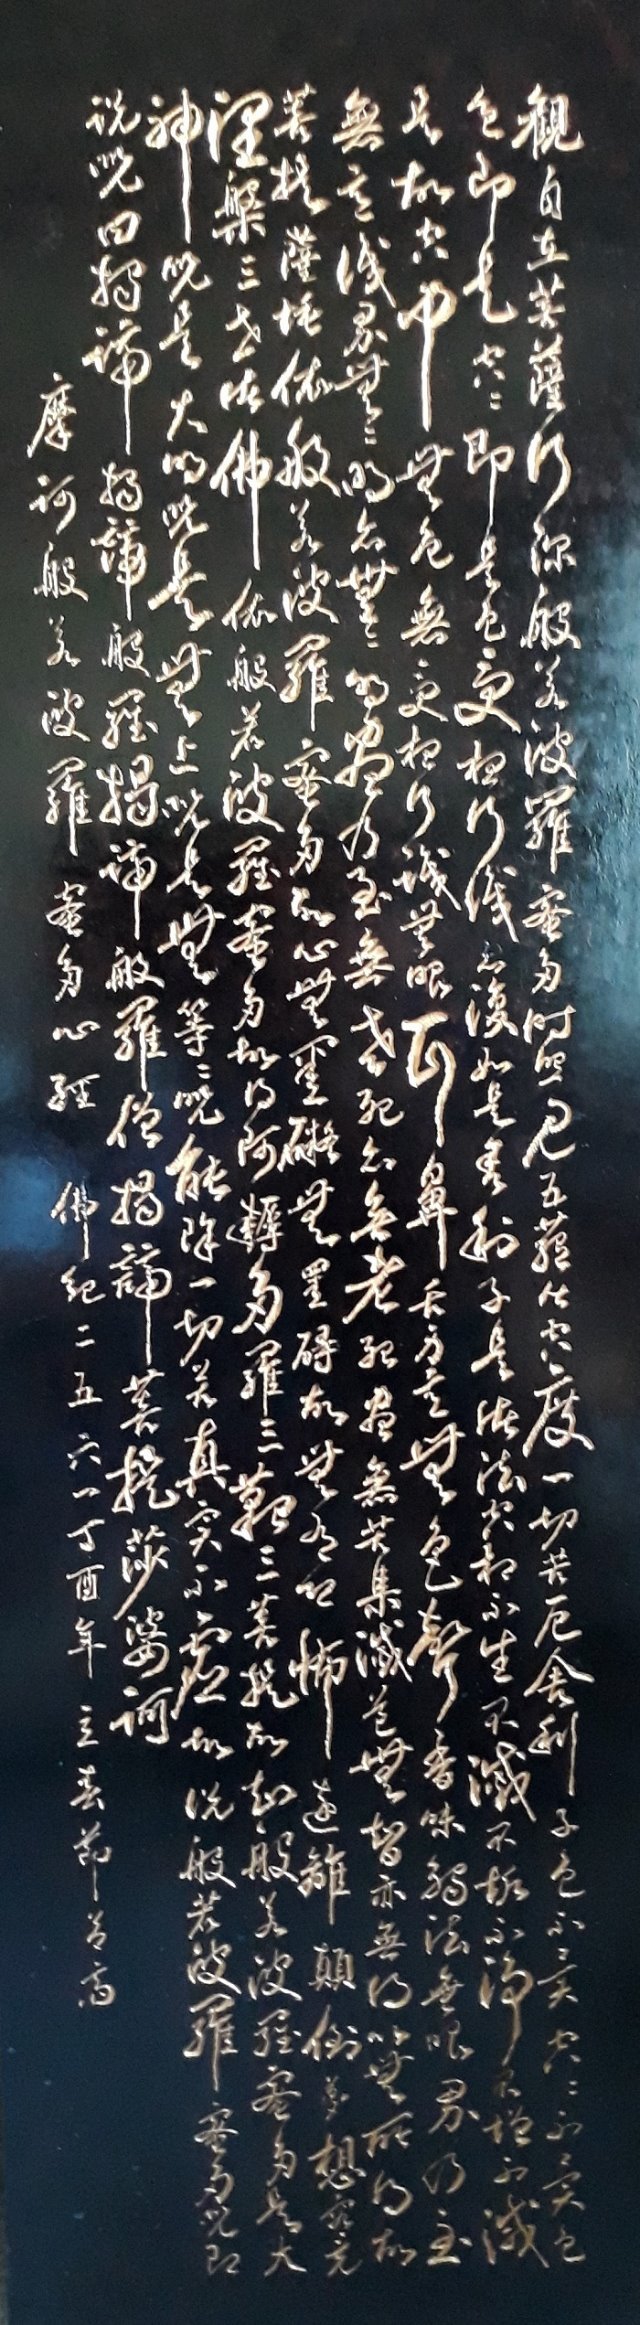 觀自在菩薩行深般若波羅蜜多時照見五蘊皆空度一切苦厄舍利子色不〻異空〻不〻異色
色即是空〻即是色受想行識亦復如是舍利子是諸法空相不生不滅不垢不淨不增不減
是故空中無色無受想行識無眼耳鼻舌身意無色聲香味觸法無眼界乃至
無意識界無〻明亦無〻明盡乃至無老死亦無老死盡無苦集滅道無智亦無得以無所得故
菩提薩埵依般若波羅蜜多故心無罣礙無罣碍故無有恐怖遠離顛倒夢想究竟
涅槃三世諸佛依般若波羅蜜多故得阿耨多羅三藐三菩提故知般若波羅蜜多是大
神咒是大明咒是無上咒是無等〻咒能除一切苦真實不虛故說般若波羅蜜多咒即
說咒曰揭諦揭諦般羅揭諦般羅僧揭諦菩提莎婆訶
摩訶般若波羅蜜多心經 佛紀二五六一丁酉年立春節